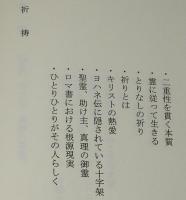 ・二重性を貫く本質
・霊に従って生きる
・とりなしの祈り
・祈りとは
・キリストの熱愛
・ヨハネ伝に隠されている十字架
・聖霊、助け主、真理の御霊
・ロマ書における根源現実
・ひとりひとりがその人らしく
祈祷